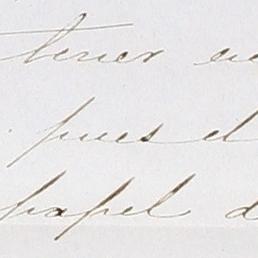 tener
pues el
papel d